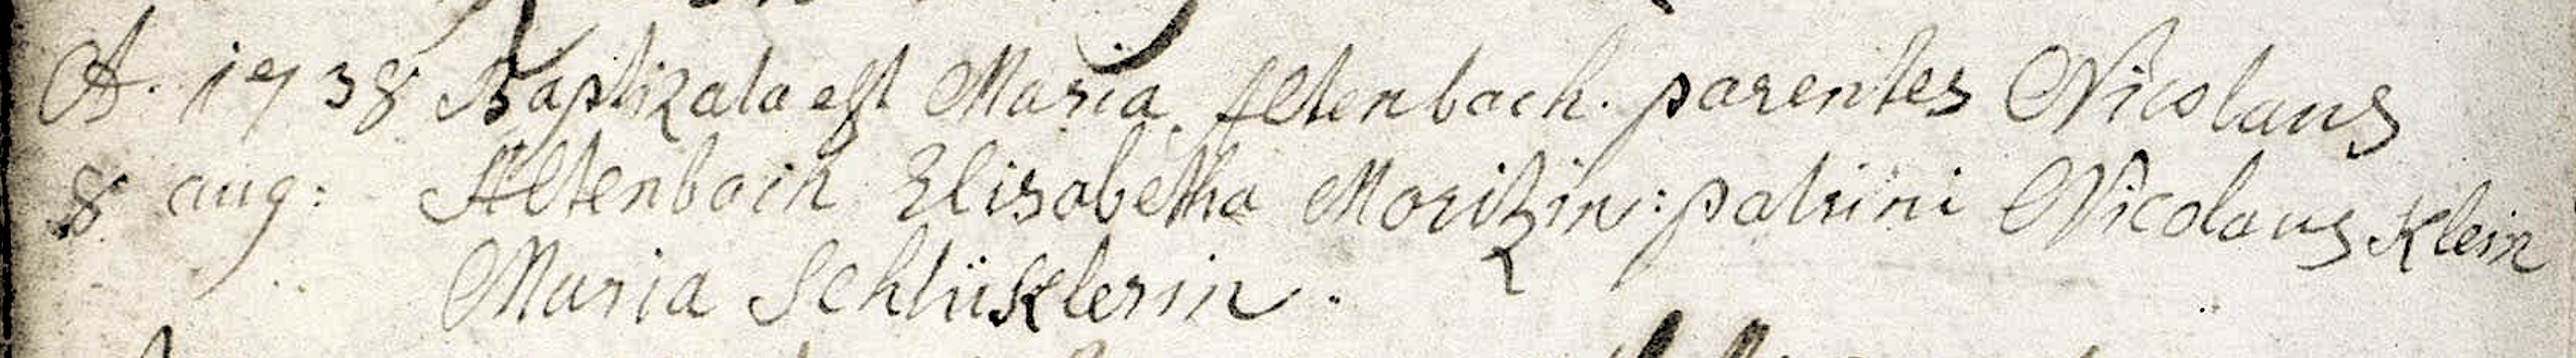 A. 1738 Baptizata est Maria Altenbach. parentes Nicolaus
8 aug: Altenbach Elisabetha Moritzin: patrini Nicolaus Klein
Maria Schlüsklerin.